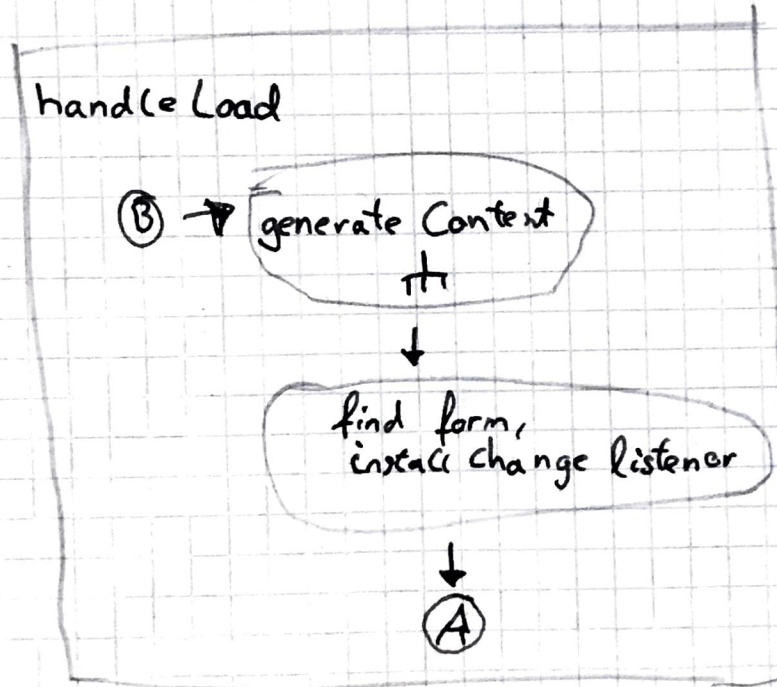 handle Load
B
generate Context
find form,
install change listener
A